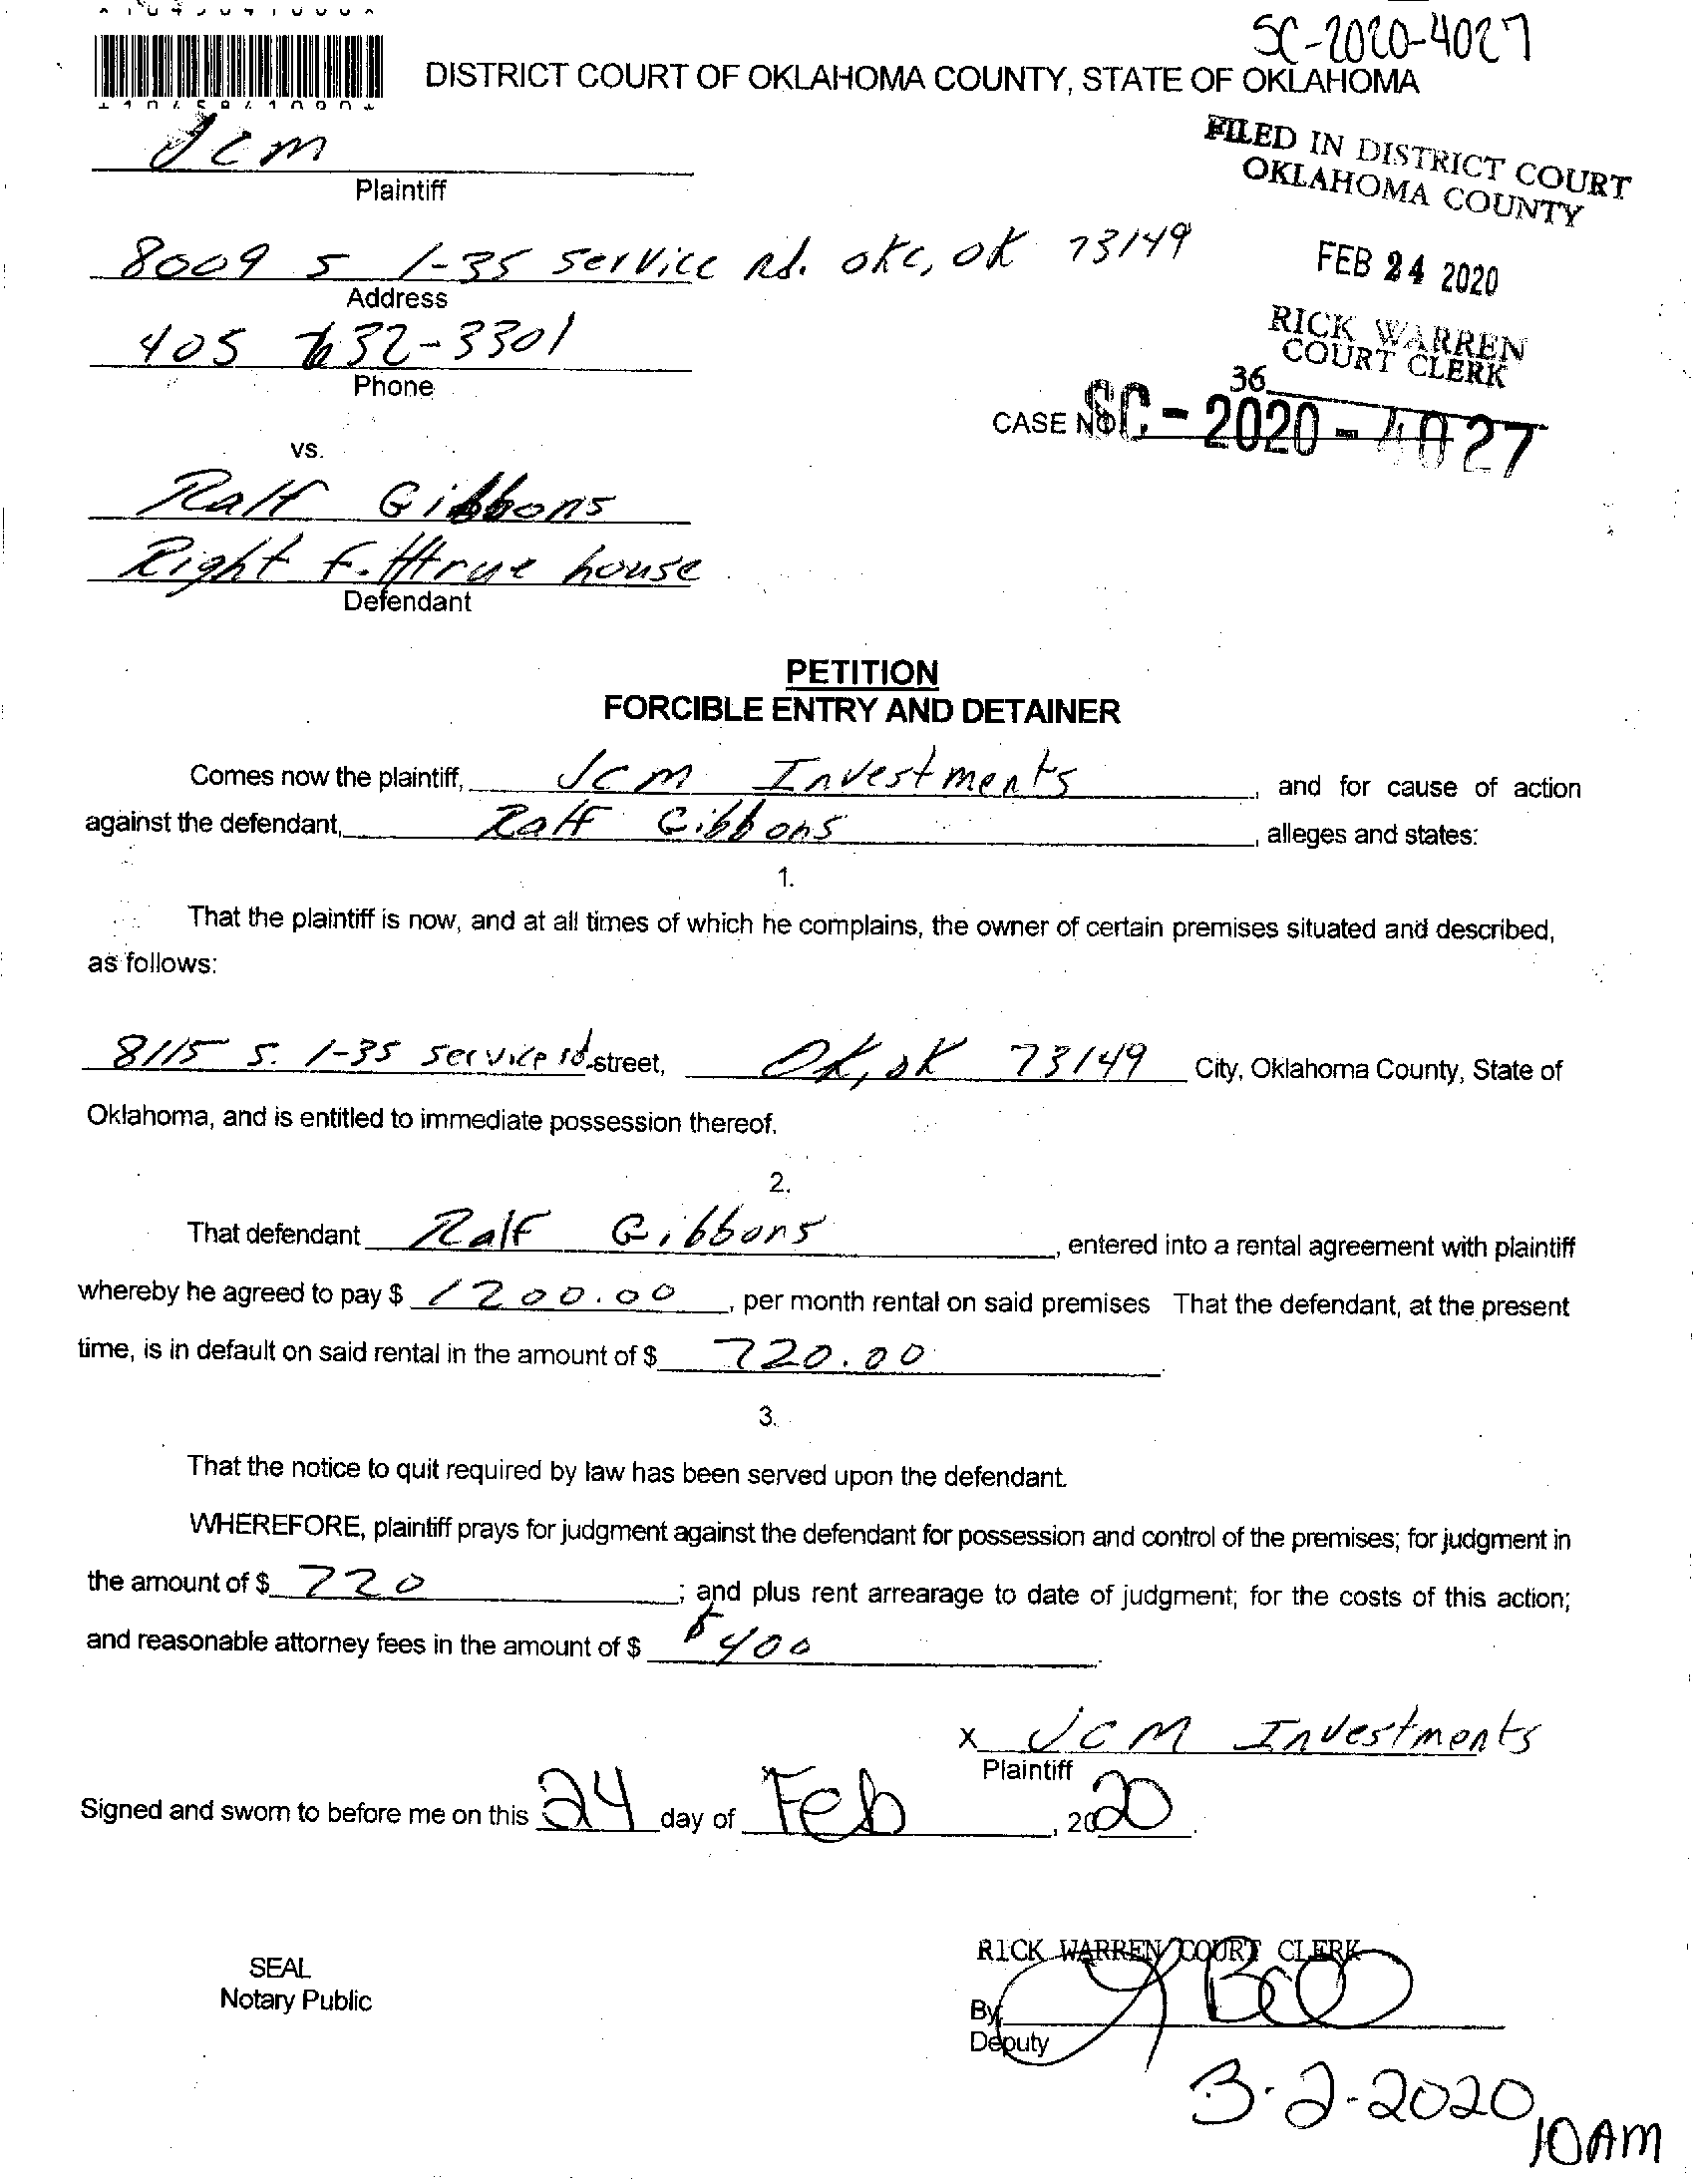 SC-2020-4027
DISTRICT COURT OF OKLAHOMA COUNTY, STATE OF OKLAHOMA
JCM
Plaintiff
FILED IN DISTRICT COURT
OKLAHOMA COUNTY
8009 S I-35 Service Rd. OKC, OK 73149
Address
FEB 24 2020
405 632-3301
Phone
RICK WARREN
COURT CLERK
36
CASE NO. SC-2020-4027
vs.
Ralf Gibbons
Right house
Defendant
PETITION
FORCIBLE ENTRY AND DETAINER
Comes now the plaintiff, JCM Investments, and for cause of action
against the defendant, Ralf Gibbons, alleges and states:
1.
That the plaintiff is now, and at all times of which he complains, the owner of certain premises situated and described,
as follows:
8115 S. I-35 Service rd. street, OK, OK 73149 City, Oklahoma County, State of
Oklahoma, and is entitled to immediate possession thereof.
2.
That defendant Ralf Gibbons, entered into a rental agreement with plaintiff
whereby he agreed to pay $ 1200.00, per month rental on said premises That the defendant, at the present
time, is in default on said rental in the amount of $ 720.00.
3.
That the notice to quit required by law has been served upon the defendant.
WHEREFORE, plaintiff prays for judgment against the defendant for possession and control of the premises; for judgment in
the amount of $ 720; and plus rent arrearage to date of judgment; for the costs of this action;
and reasonable attorney fees in the amount of $ $400.
X JCM Investments
Plaintiff
Signed and sworn to before me on this 24 day of Feb, 2020.
RICK WARREN COURT CLERK
SEAL
Notary Public
By
Deputy
3-2-2020
10AM